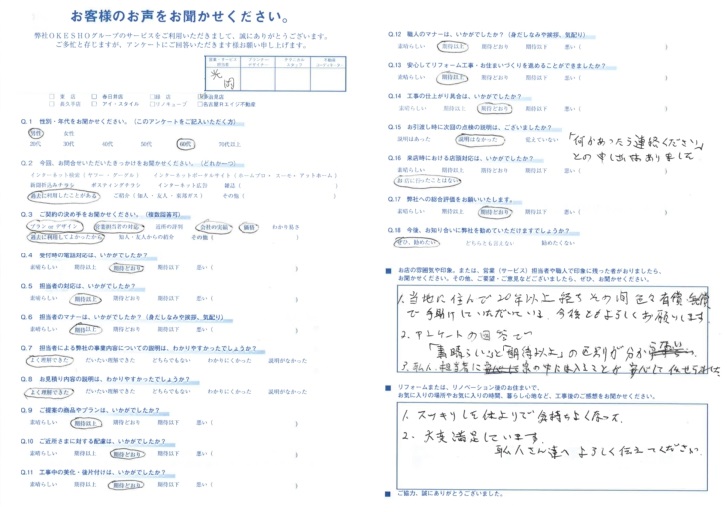 お客様のお声をお聞かせください。
弊社OKESHOグループのサービスをご利用いただきまして、誠にありがとうございます。
ご多忙と存じますが、アンケートにご回答いただきます様お願い申し上げます。
春日井店
アイ・スタイル
リノキューブ
名古屋日エイジ不動産
Q.1 性別・年代をお聞かせください。(このアンケートをご記入いただく方)
男性 女性
20代 30代 40代 50代 60代 70代以上
Q.2 今回、お問合せいただいたきっかけをお聞かせください。(どれか一つ)
インターネット検索(ヤフー・グーグル) インターネットポータルサイト(ホームプロ・エーカー アットホーム)
新聞折込みチラシ ポスティングチラシ インターネット広告 雑誌( )
過去に利用したことがある ご紹介(知人・友人・東邦ガス) その他( )
Q.3 ご契約の決め手をお聞かせください。(複数回答可)
プラン or デザイン 営業担当者の対応 近所の評判 会社の実績 価格 わかり易さ
過去に利用してよかったから 知人・友人からの紹介 その他( )
Q.4 受付時の電話対応は、いかがでしたか?
素晴らしい 期待以上 期待どおり 期待以下 悪い( )
Q.5 担当者の対応は、いかがでしたか?
素晴らしい 期待以上 期待どおり 期待以下 悪い( )
Q.6 担当者のマナーは、いかがでしたか?(身だしなみや挨拶、気配り)
素晴らしい 期待以上 期待どおり 期待以下 悪い( )
Q.7 担当者による弊社の事業内容についての説明は、わかりやすかったでしょうか?
よく理解できた だいたい理解できた どちらでもない わかりにくかった 説明がなかった
Q.8 お見積り内容の説明は、わかりやすかったでしょうか?
よく理解できた だいたい理解できた どちらでもない わかりにくかった 説明がなかった
Q.9 ご提案の商品やプランは、いかがでしたか?
素晴らしい 期待以上 期待どおり 期待以下 悪い( )
Q.10 ご近所さまに対する配慮は、いかがでしたか?
素晴らしい 期待以上 期待どおり 期待以下 悪い( )
Q.11 工事中の美化・後片付けは、いかがでしたか?
素晴らしい 期待以上 期待どおり 期待以下 悪い( )
Q.12 職人のマナーは、いかがでしたか?(身だしなみや挨拶、気配り)
素晴らしい 期待以上 期待どおり 期待以下 悪い( )
Q.13 安心してリフォーム工事・お住まいづくりを進めることができましたか?
素晴らしい 期待以上 期待どおり 期待以下 悪い( )
Q.14 工事の仕上がり具合は、いかがでしたか?
素晴らしい 期待以上 期待どおり 期待以下 悪い( )
Q.15 お引渡し時に次回の点検の説明は、ございましたか?
説明はあった 説明はなかった 覚えていない
「何かあったら連絡ください」
との申し出はありました
Q.16 来店時における店頭対応は、いかがでしたか?
素晴らしい 期待以上 期待どおり 期待以下 悪い( )
お店に行ったことはない
Q.17 弊社への総合評価をお願いいたします。
素晴らしい 期待以上 期待どおり 期待以下 悪い( )
Q.18 今後、お知り合いに弊社を勧めていただけますでしょうか?
ぜひ、勧めたい どちらとも言えない 勧めたくない
お店の雰囲気や印象、または、営業(サービス)担当者や職人で印象に残った者がおりましたら、
お聞かせください。その他、ご要望・ご意見などございましたら、ぜひ、お聞かせください。
1. 当地に住んで20年以上経ち その間 色々有償・無償
で手助けしていただいている。今後ともよろしくお願いします。
2. アンケートの回答で
「素晴らしい」と「期待以上」の区別が分から
3. 職人、担当者に
リフォームまたは、リノベーション後のお住まいで、
お気に入りの場所やお気に入りの時間、暮らし心地など、工事後のご感想をお聞かせください。
1. スッキリした仕上りで気持ちよく
2. 大変満足しています。
職人さん達へよろしく伝えてください。
ご協力、誠にありがとうございました。